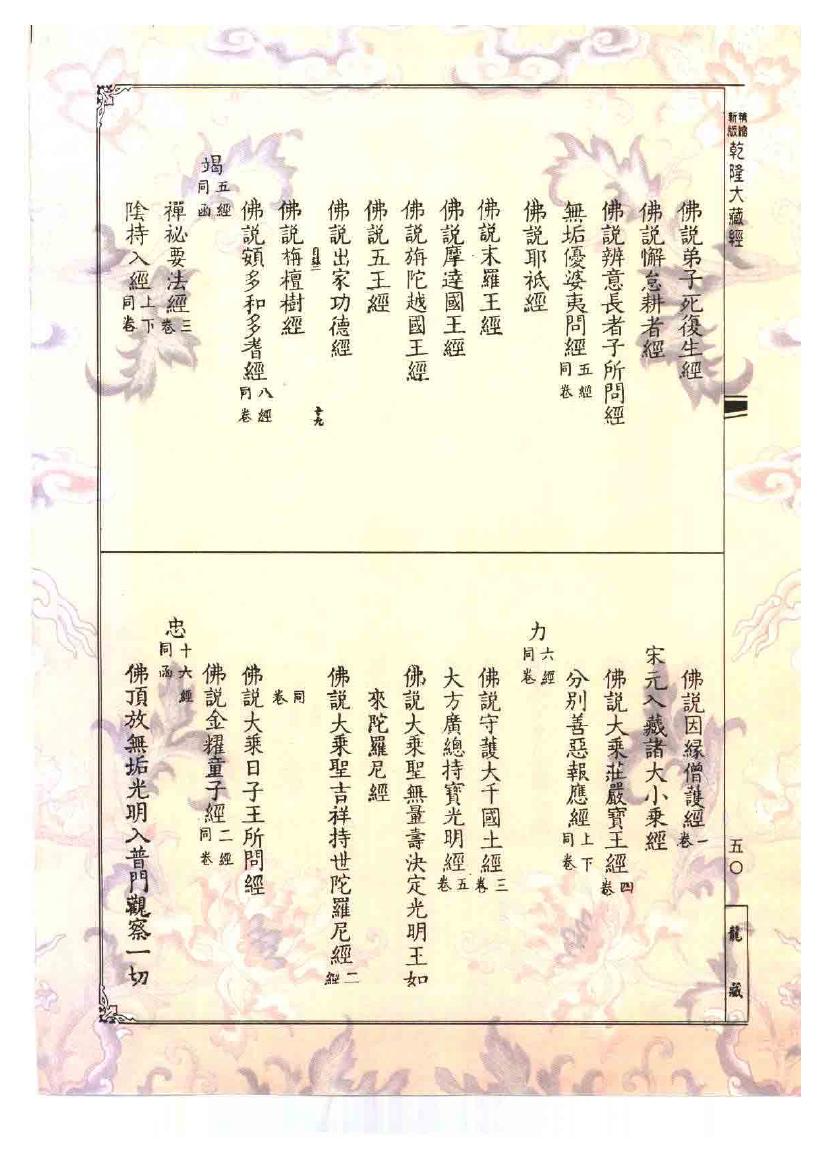 精縮新版
乾隆大藏經
佛說弟子死復生經
佛說懈怠耕者經
佛說辨意長者子所問經
無垢優婆夷問經五經同卷
佛說耶祗經
佛說末羅王經
佛說摩達國王經
佛說旃陀越國王經
佛說五王經
佛說出家功德經
十九
佛說栴檀樹經
佛說頞多和多耆經八經同卷
竭五經同函
禪祕要法經三卷
陰持入經上下同卷
佛說因緣僧護經一卷
宋元入藏諸大小乘經
佛說大乘莊嚴寶王經四卷
分別善惡報應經上下同卷
力六經同卷
佛說守護大千國土經三卷
大方廣總持寶光明經五卷
佛說大乘聖無量壽決定光明王如
來陀羅尼經
佛說大乘聖吉祥持世陀羅尼經二經
同卷
佛說大乘日子王所問經
佛說金耀童子經二經同卷
忠十六經同函
佛頂放無垢光明入普門觀察一切
五〇
龍藏